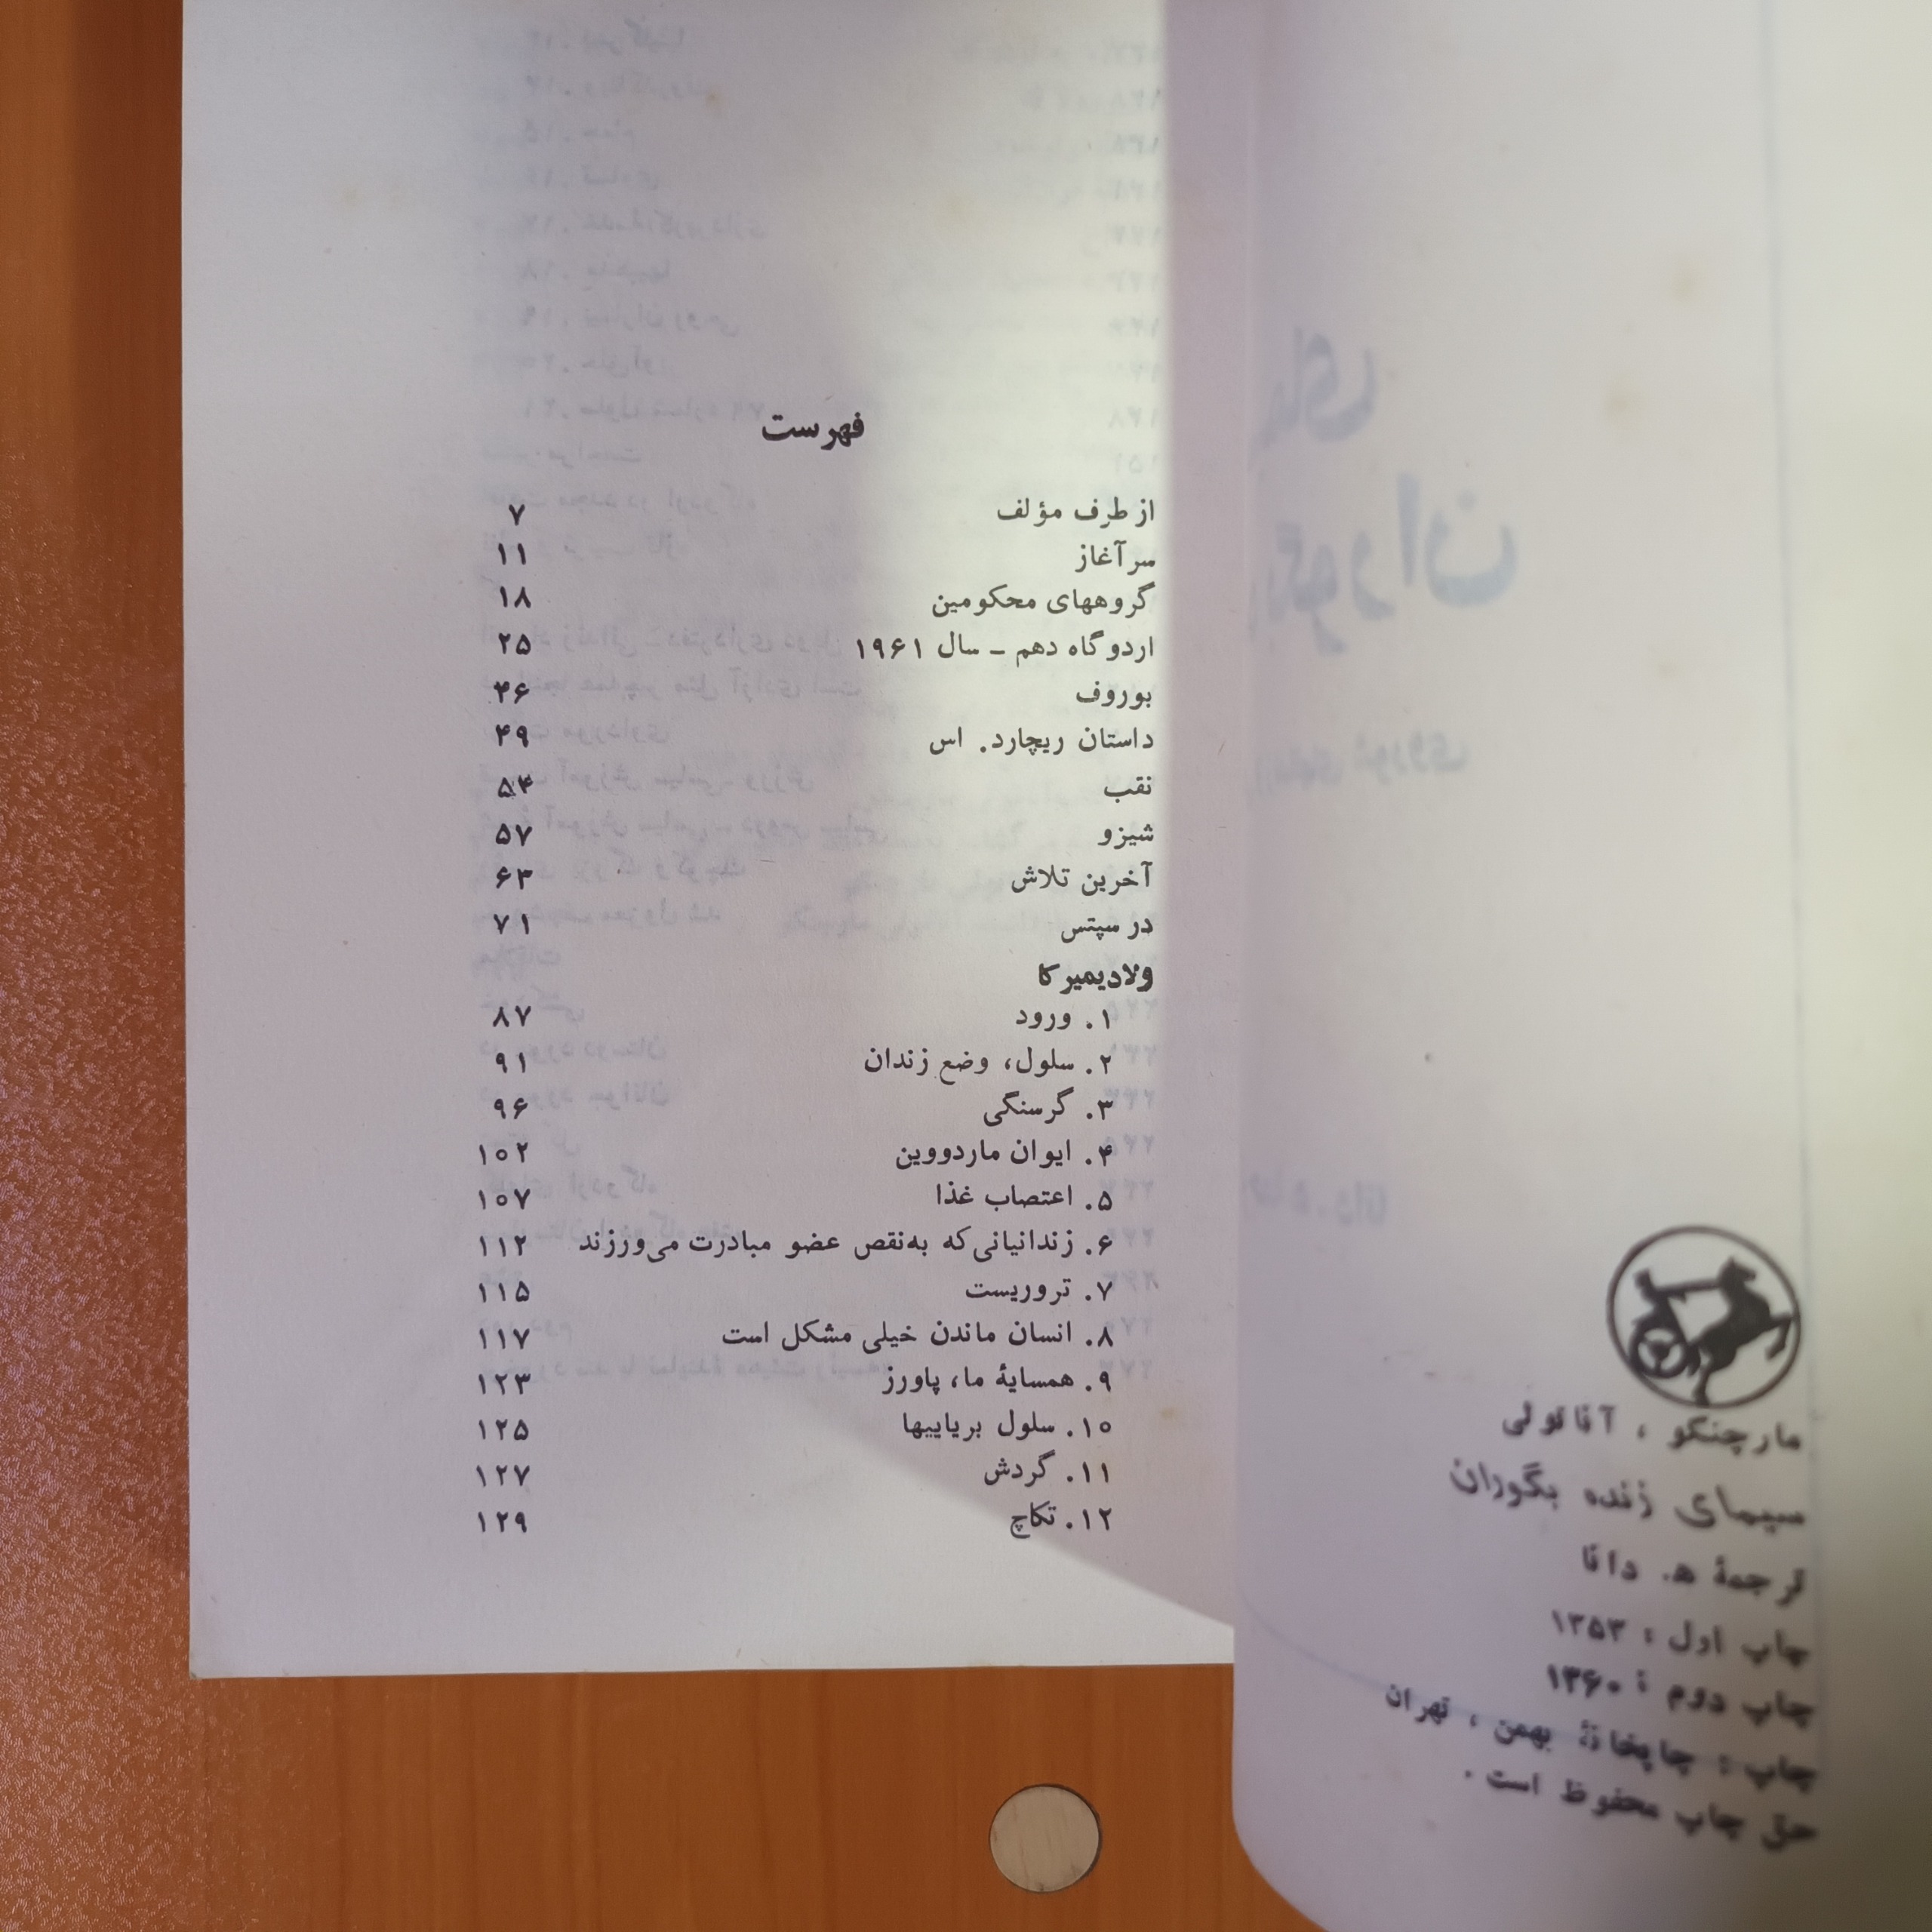 مارچنکو ، آناتولی
سیمای زنده بگوران
ترجمهٔ ه. دانا
چاپ اول : ۱۳۵۳
چاپ دوم : ۱۳۶۰
چاپ : چاپخانهٔ بهمن ، تهران
حق چاپ محفوظ است .
فهرست
از طرف مؤلف ۷
سرآغاز ۱۱
گروههای محکومین ۱۸
اردوگاه دهم ـ سال ۱۹۶۱ ۲۵
بوروف ۴۶
داستان ریچارد. اس ۴۹
نقب ۵۴
شیزو ۵۷
آخرین تلاش ۶۳
در سپتس ۷۱
ولادیمیرکا
۱. ورود ۸۷
۲. سلول، وضع زندان ۹۱
۳. گرسنگی ۹۶
۴. ایوان ماردووین ۱۰۲
۵. اعتصاب غذا ۱۰۷
۶. زندانیانی‌که به‌نقص عضو مبادرت می‌ورزند ۱۱۲
۷. تروریست ۱۱۵
۸. انسان ماندن خیلی مشکل است ۱۱۷
۹. همسایهٔ ما، پاورز ۱۲۳
۱۰. سلول بریاییها ۱۲۵
۱۱. گردش ۱۲۷
۱۲. تکاچ ۱۲۹